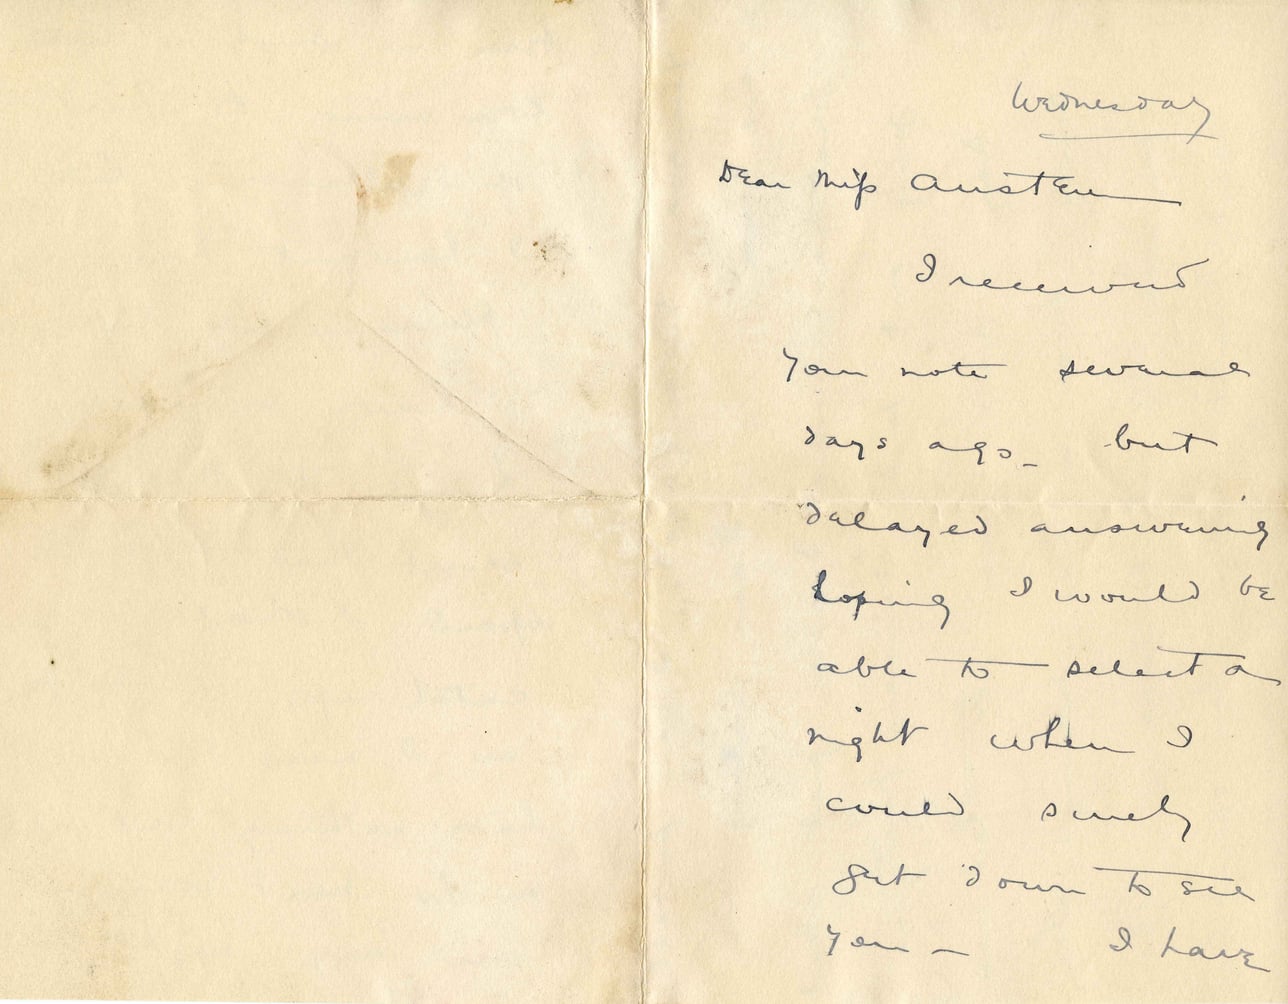 Wednesday
Dear Miss Austen
I received
your note several
days ago_ but
delayed answering
hoping I would be
able to select a
night when I
could surely
get down to see
you — I have